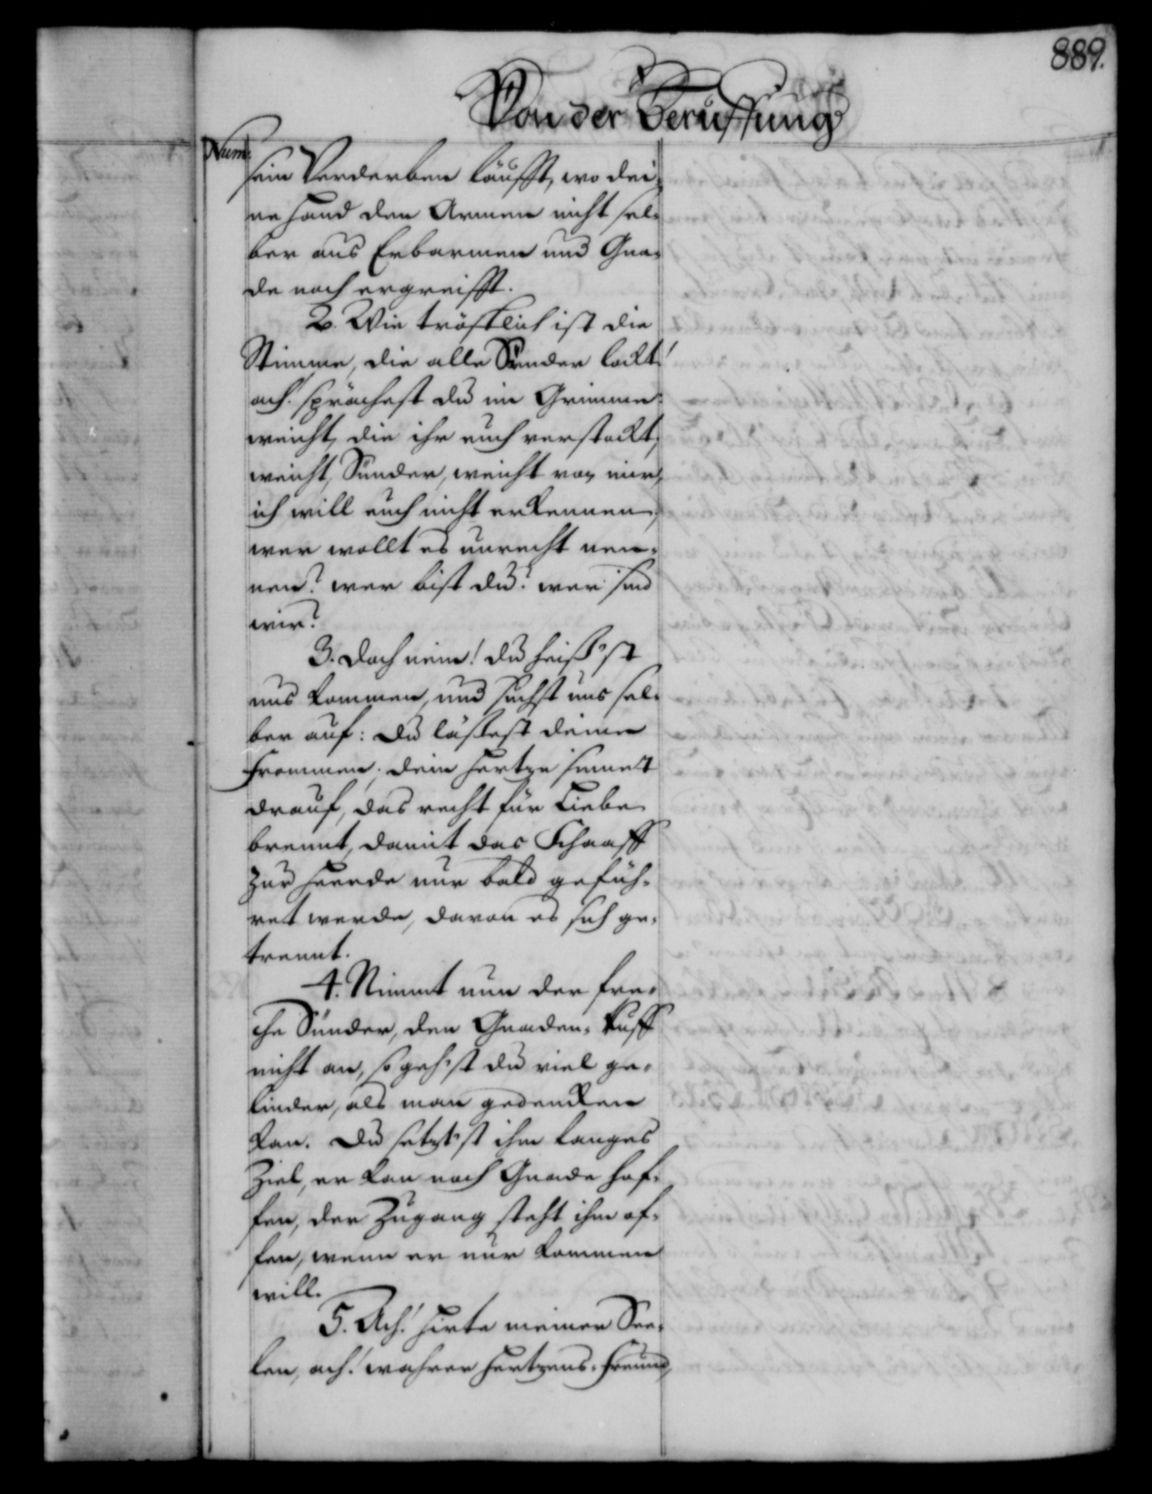 889.
Von der Beruffung
Num.
sein Verderben läufft, wo dei-
ne Hand den Armen nicht sel-
ber aus Erbarmen und Gna-
de noch ergreifft.
2. Wie tröstlich ist die
Stimme, die alle Sünder lockt!
ach! sprächest du im Grimme:
weicht, die ihr euch verstockt,
weicht, Sünder, weicht von mir,
ich will euch nicht erkennen,
wer wollt es unrecht nen-
nen? wer bist du? wer sind
wir?
3. Doch nein! du heiss'st
uns kommen, und suchst uns sel-
ber auf: Du lässest deine
Frommen. dein Hertze sinnet
drauf, das recht für Liebe
brennt, damit das Schaaff
zur Heerde nur bald gefüh-
ret werde, davon es sich ge-
trennt.
4. Nimmt nun der fre-
che Sünder, den Gnaden-Ruff
nicht an, so geh'st du viel ge-
linder, als man gedencken
kan. Du setzt'st ihm langes
Ziel, er kan noch Gnade hof-
fen, der Zugang steht ihm of-
fen, wenn er nur kommen
will.
5. Ach! Hirte meiner See-
len, ach! wahrer Hertzens-Freund,